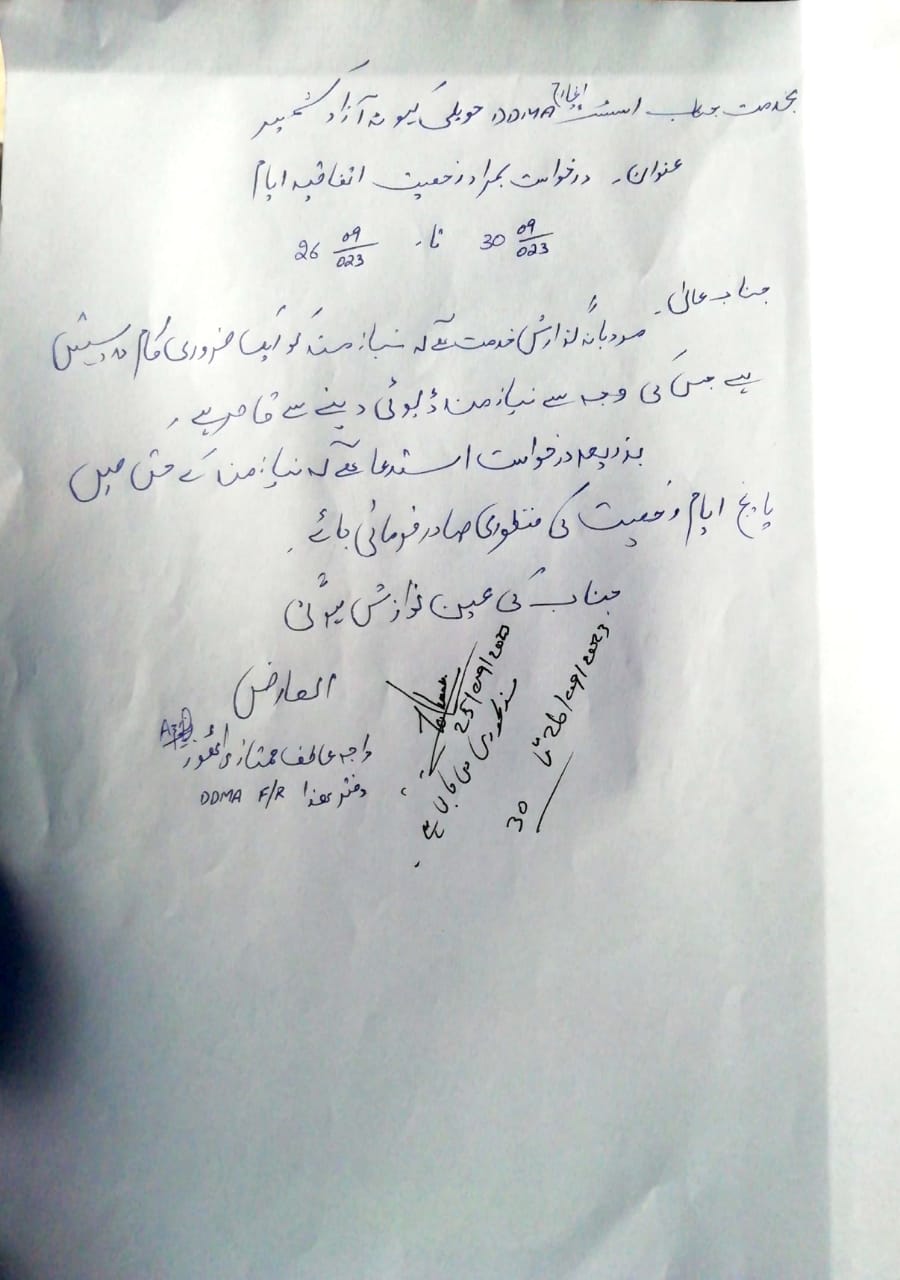 بخدمت جناب اسسٹنٹ انچارج DDMA حویلی کہوٹہ آزاد کشمیر
عنوان۔ درخواست بمراد رخصت اتفاقیہ ایام
26 09/023 تا 30 09/023
جناب عالی۔
مودبانہ گذارش خدمت ہے کہ نیاز مند کو ایک ضروری کام درپیش
ہے جس کی وجہ سے نیاز مند ڈیوٹی دینے سے قاصر ہے۔
بذریعہ درخواست استدعا ہے کہ نیاز مند کے حق میں
پانچ ایام رخصت کی منظوری صادر فرمائی جائے۔
جناب کی عین نوازش ہوگی
العارض
راجہ عاطف ممتاز
دفتر ھذا DDMA F/R
25/09/2023
منظوری دی جاتی ہے۔
26/09/2023 تا
30